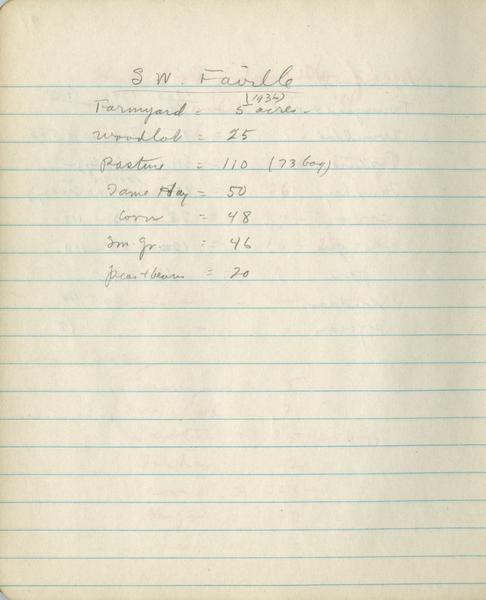 S W. Faville
(1936)
Farmyard = 5 acres.
Woodlot = 25
Pasture = 110 (73 bog)
Tame Hay = 50
Corn = 48
Sm. Gr. = 46
peas + beans = 20